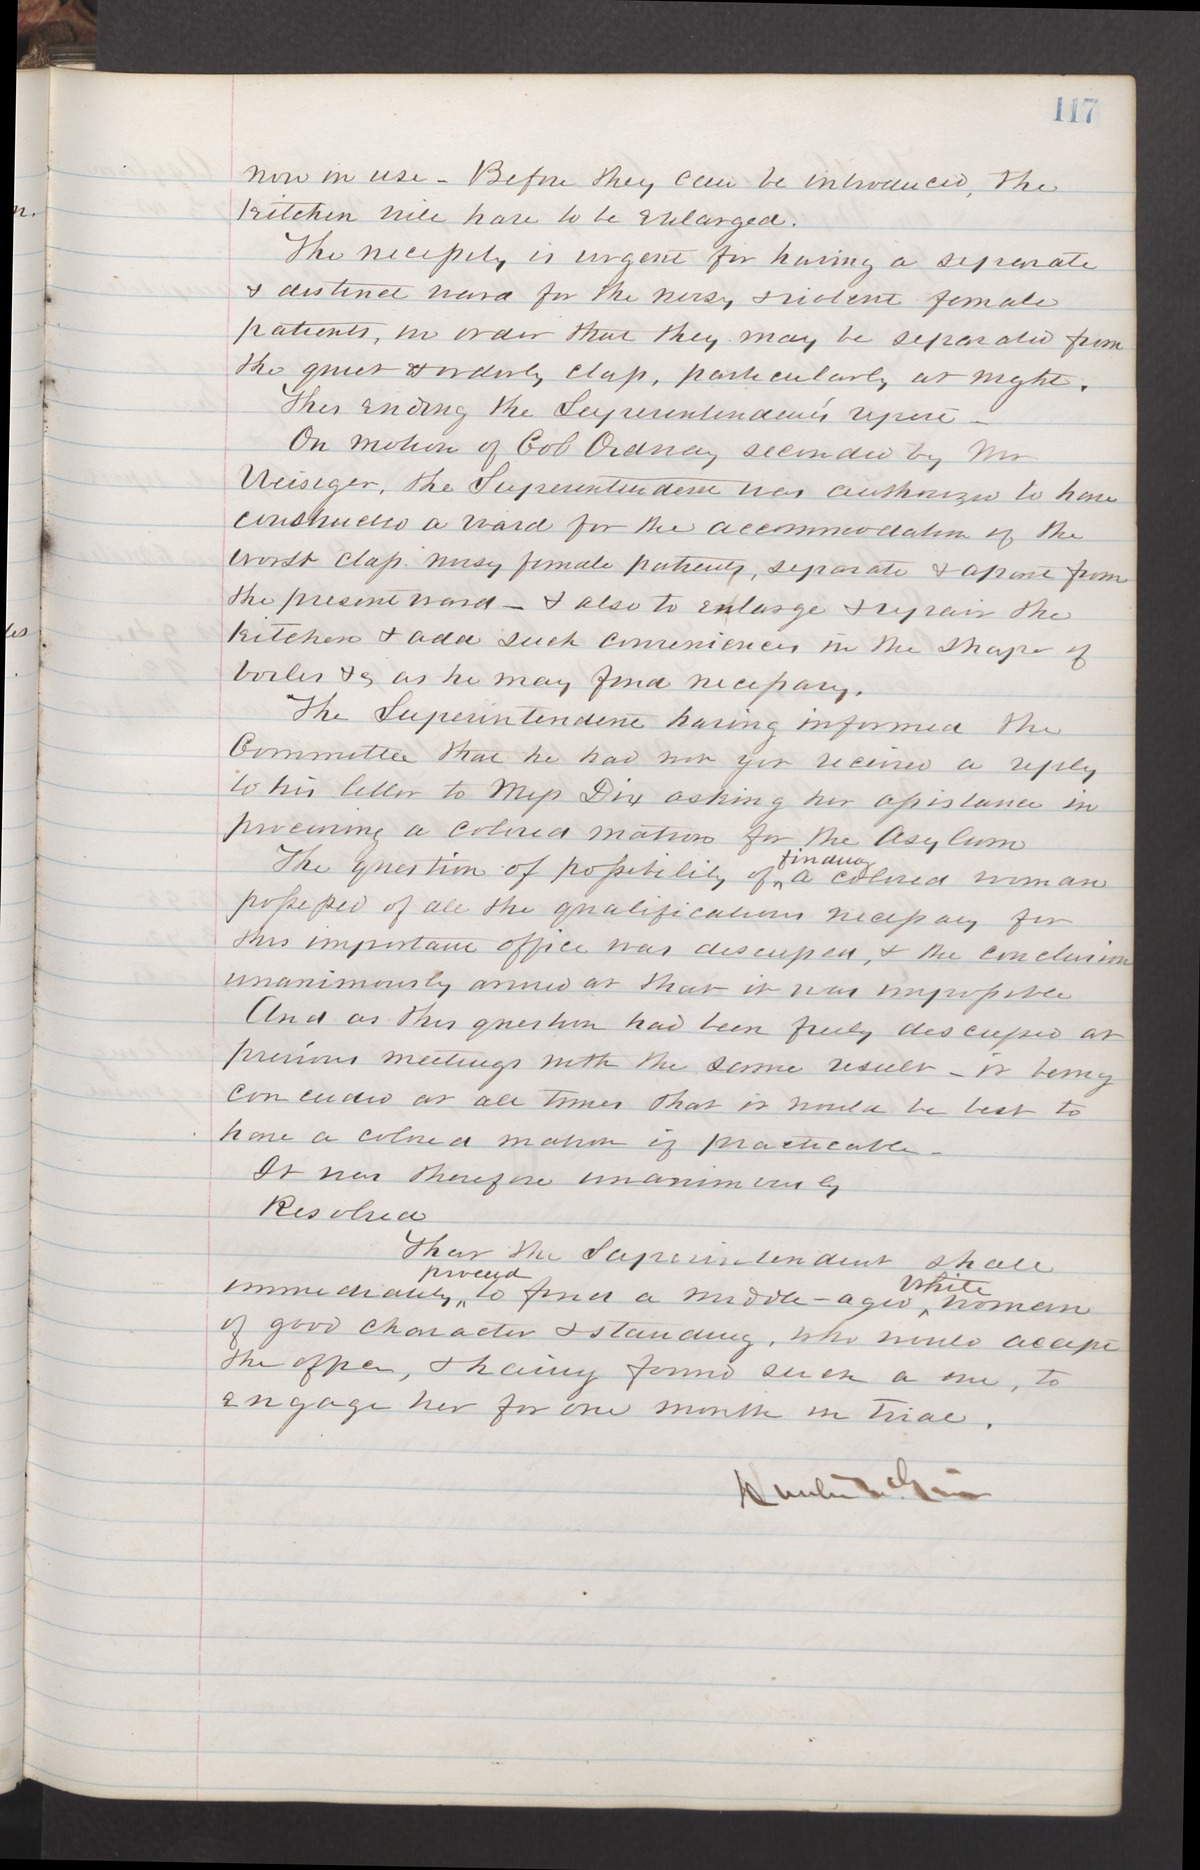 117
now in use - Before they can be introduced, the
kitchen will have to be enlarged.
The necessity is urgent for having a separate
& distinct ward for the noisy & violent female
patients, in order that they may be separated from
the quiet & orderly class, particularly at night.
Thus ending the Superintendent's report -
On motion of Col Ordway seconded by Mr
Weisiger, the Superintendent was authorized to have
constructed a ward for the accommodation of the
worst class noisy female patients, separate & apart from
the present ward - & also to enlarge & repair the
kitchen & add such conveniences in the shape of
boiler &c as he may find necessary.
The Superintendent having informed the
Committee that he had not yet received a reply
to his letter to Miss Dix asking her assistance in
procuring a colored matron for the Asylum
The question of possibility of finding a colored woman
possessed of all the qualifications necessary for
this important office was discussed, & the conclusion
unanimously arrived at that it was impossible
And as this question had been freely discussed at
previous meetings with the same result - it being
concluded at all times that it would be best to
have a colored matron if practicable -
It was therefore unanimously
Resolved
That the Superintendent shall
immediately proceed to find a middle-aged White woman
of good character & standing, who would accept
the office, & having found such a one, to
engage her for one month on trial.
n.